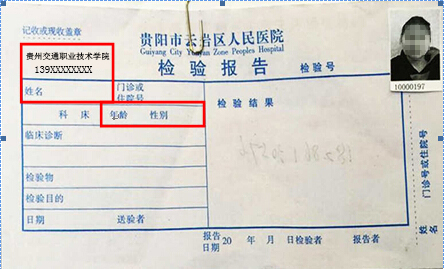 记收或现收盖章
贵阳市云岩区人民医院
Guiyang City Yunyan Zone Peoples Hospital
贵州交通职业技术学院
139XXXXXXXX
检验报告 检验号
10000197
姓名 门诊或住院号
科 床 年龄 性别
检验结果
临床诊断
检验物
检验目的
日期 送验者
报告日期 20 年 月 日 检验者 报告者
门诊号或住院号
姓名